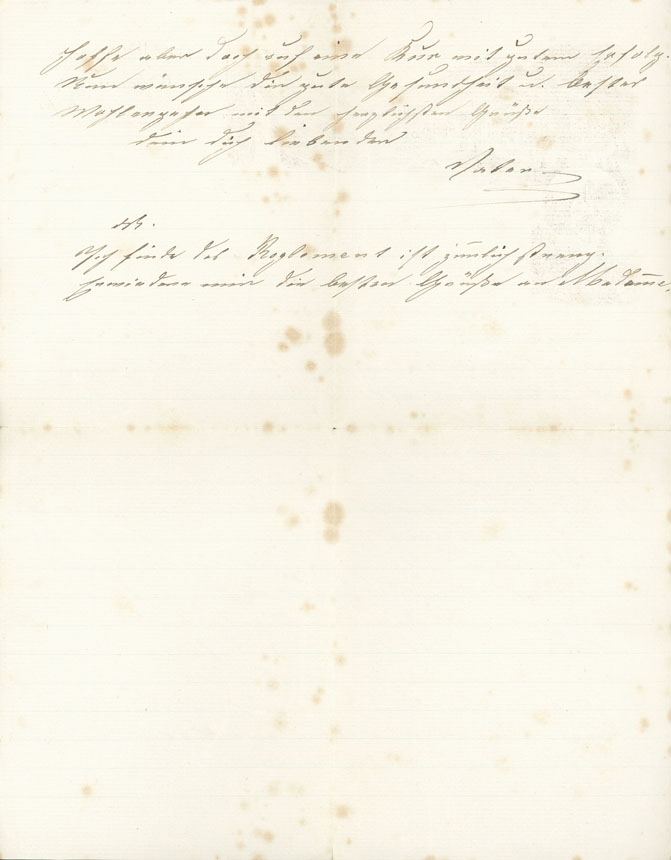 hoffe aber doch auf eine Kur mit gutem Erfolg.
Nun wünsche dir gute Gesundheit u. bestes
Wohlergehen mit den herzlichsten Grüße
dein dich liebender
Vater
Ich finde das Reglement ist ziemlich streng.
mir die besten Grüße an Madame,